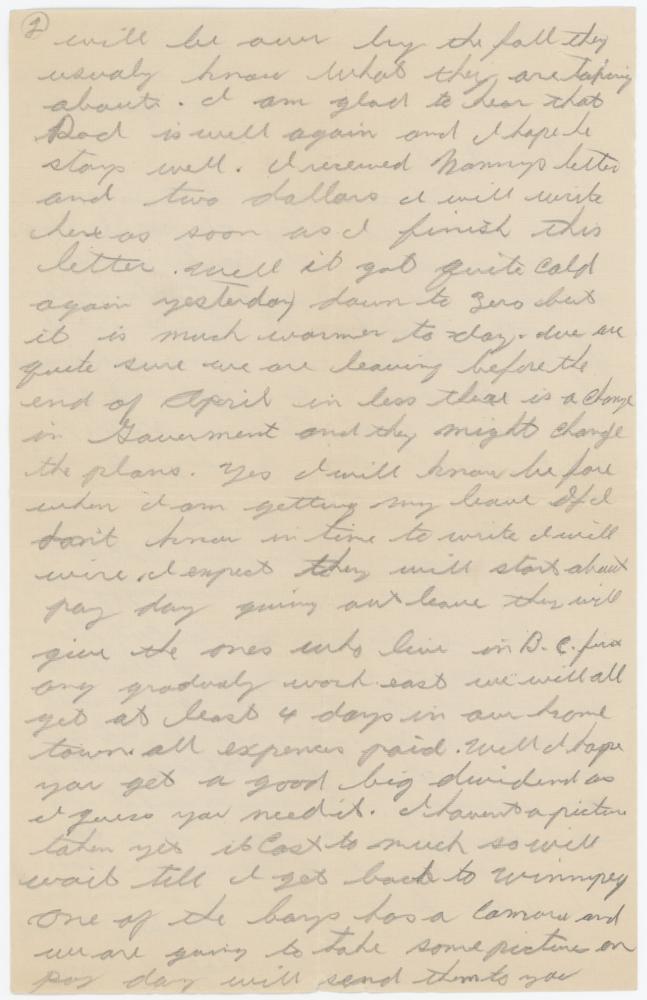 2
will be over by the fall they
usualy know what they are talking
about. I am glad to hear that
Dad is well again and I hope he
stays well. I received Nannys letter
and two dollars I will write
her as soon as I finish this
letter. Well it got quite cold
again yesterday down to zero but
it is much warmer to-day. We are
quite sure we are leaving before the
end of April in less there is a change
in Goverment and they might change
the plans. Yes I will know before
when I am getting my leave If I
don't know in time to write I will
wire. I expect they will start about
pay day giving out leave they will
give the ones who live in B.C. first
and gradualy work east we will all
get at least 4 days in our home
town. all expences paid. Well I hope
you get a good big dividend as
I guess you need it. I havent a picture
taken yet it Cost to much so will
wait till I get back to Winnipeg
One of the boys has a Camera and
we are going to take some pictures on
pay day will send them to you